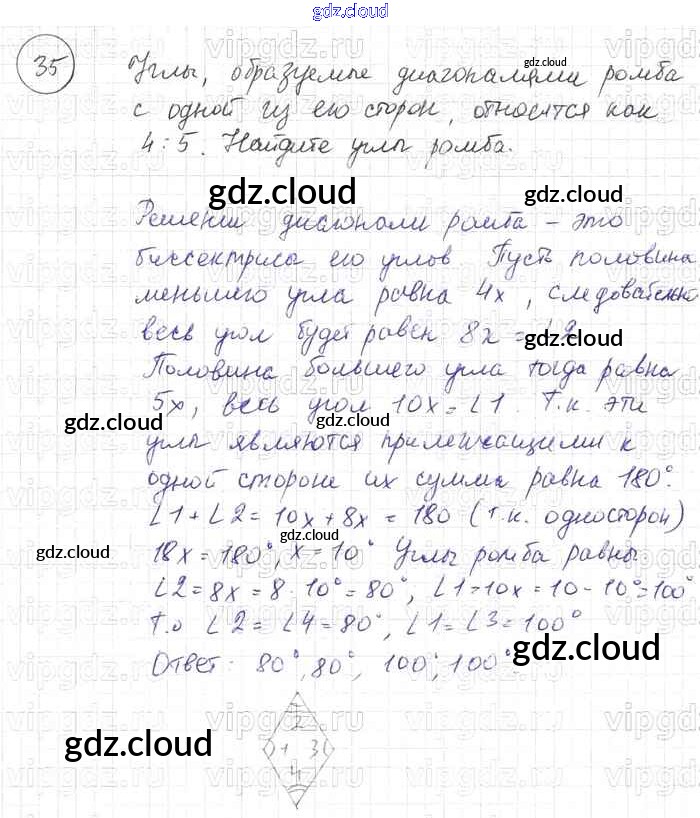 gdz.cloud
35
Углы, образуемые диагоналями ромба
с одной из его сторон, относятся как
4:5. Найдите углы ромба.
Решение диагонали ромба – это
биссектрисы его углов Пусть половина
меньшего угла равна 4x, следовательно
весь угол будет равен 8x = ∠2
Половина большего угла тогда равна
5x, весь угол 10x = ∠1. Т.к. эти
углы являются прилежащими к
одной стороне их сумма равна 180°.
∠1 + ∠2 = 10x + 8x = 180 (т.к. односторон)
18x = 180°, x = 10° Углы ромба равны
∠2 = 8x = 8 · 10° = 80°, ∠1 = 10x = 10 · 10° = 100°
Т.о ∠2 = ∠4 = 80°, ∠1 = ∠3 = 100°
Ответ: 80°, 80°, 100°, 100°
2
1 3
4
gdz.cloud
gdz.cloud
gdz.cloud
gdz.cloud
gdz.cloud
gdz.cloud
gdz.cloud
gdz.cloud
gdz.cloud
vipgdz.ru